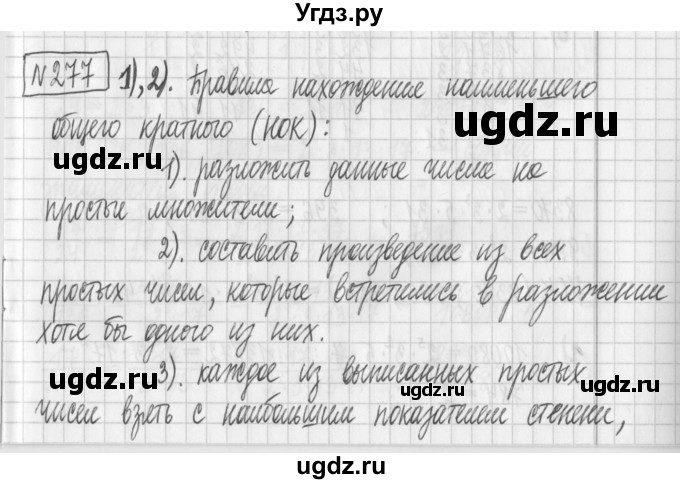 Угдз.ру
№277 1), 2). Правила нахождение наименьшего
общего кратного (НОК):
ugdz.ru
ugdz.ru
1). разложить данные числа на
простые множители;
ugdz.ru
2). составить произведение из всех
простых чисел, которые встретились в разложении
хотя бы одного из них.
ugdz.ru
ugdz.ru
3). каждое из выписанных простых
ugdz.ru
ugdz.ru
чисел взять с наибольшим показателем степени,
ugdz.ru